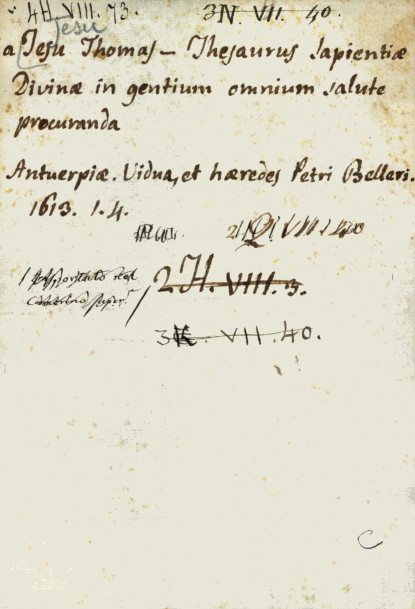 4H. VIII. 73. 3N. VII. 40.
Jesu
a Jesu Thomas — Thesaurus Sapientiæ
Divinæ in gentium omnium salute
procuranda
Antuerpiæ. Vidua, et hæredes Petri Belleri.
1613. 1.4.
2H. VIII. 3.
3K. VII. 40.
C